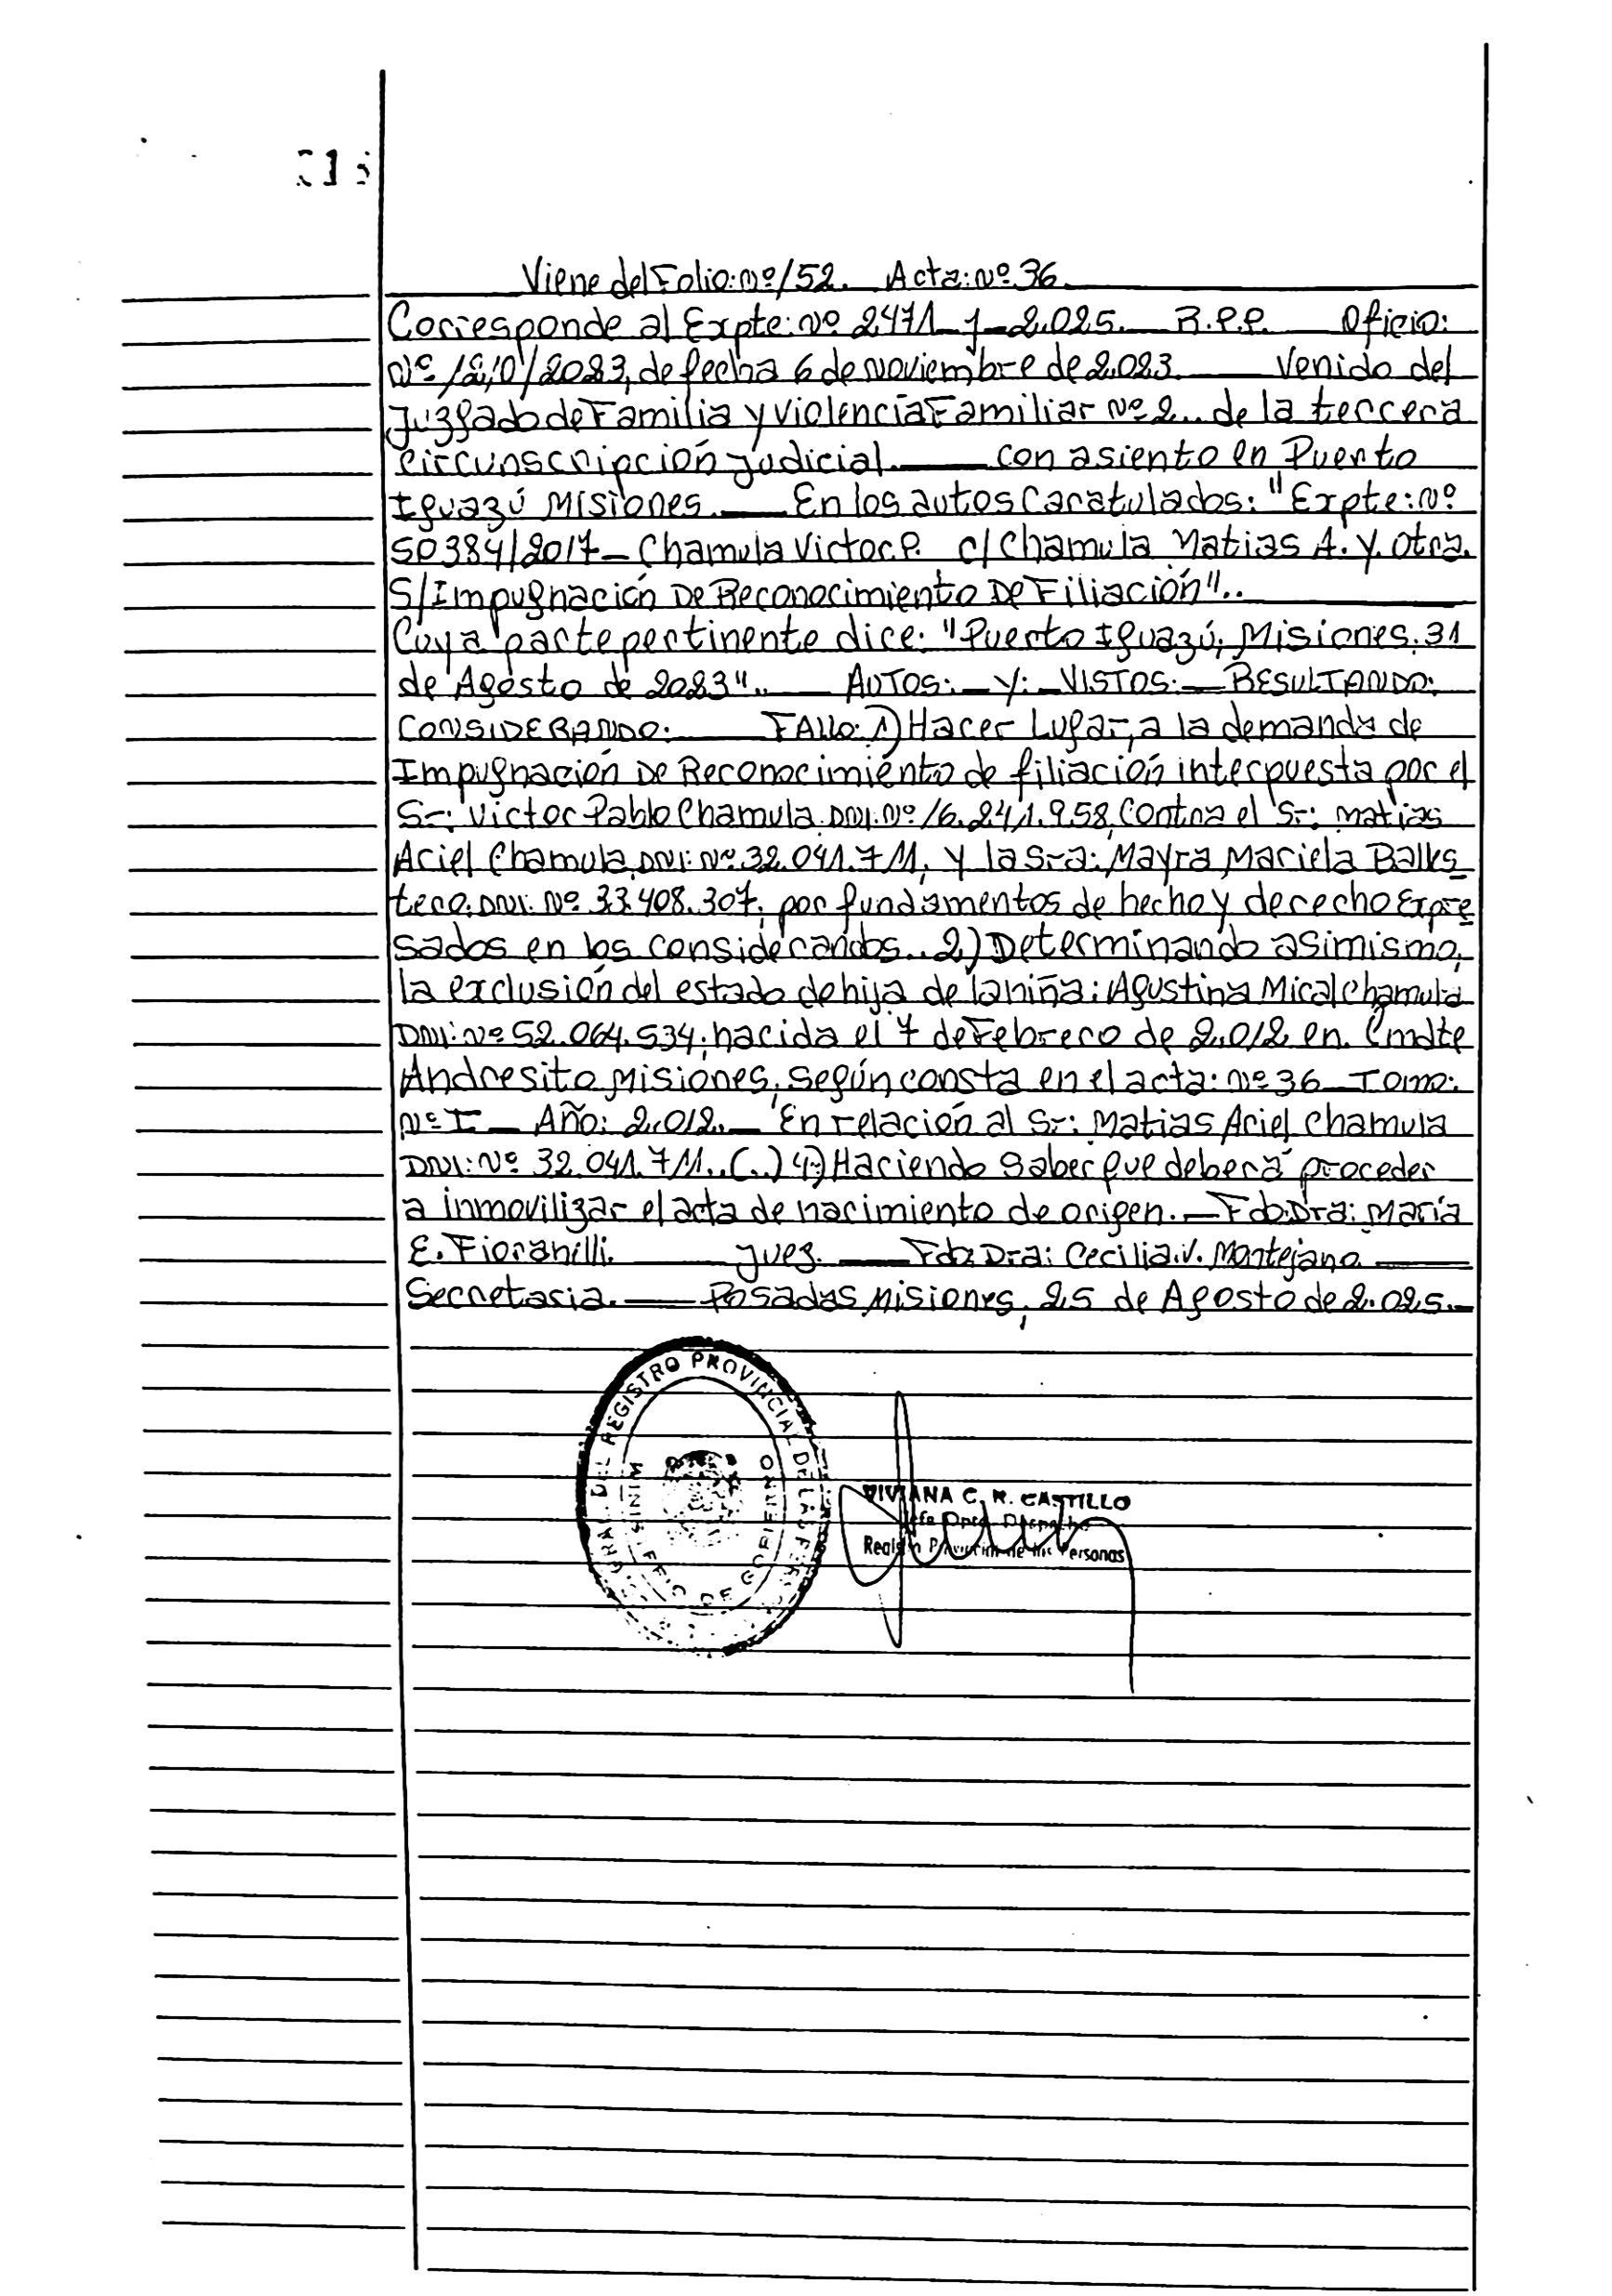 Viene del Folio: nº 152. Acta: Nº 36
Corresponde al Expte: Nº 2471 - J - 2.025. R.P.P. Oficio:
Nº 1210/2023, de fecha 6 de Noviembre de 2.023. Venido del
Juzgado de Familia y Violencia Familiar Nº 2.. de la tercera
circunscripción Judicial. con asiento en Puerto
Iguazú Misiones. En los autos Caratulados: "Expte: Nº
50384/2017 - Chamula Victor. P. c/ Chamula Matias A. y. otra.
S/ Impugnación De Reconocimiento De Filiación"..
Cuya parte pertinente dice: "Puerto Iguazú, Misiones. 31
de Agosto de 2023".. AUTOS: - Y: - VISTOS: - RESULTANDO:
CONSIDERANDO: FALLO: 1) Hacer Lugar, a la demanda de
Impugnación De Reconocimiento de filiación interpuesta por el
Sr: Victor Pablo Chamula DNI: Nº 16.241.958, Contra el Sr: Matias
Ariel Chamula, DNI: Nº 32.041.711, y la Sra: Mayra Mariela Balles
tero. DNI: Nº 33.408.307, por fundamentos de hecho y derecho Expre
sados en los considerandos.. 2) Determinando asimismo,
la exclusión del estado de hija de la niña: Agustina Mical Chamula
DNI: Nº 52.064.534, nacida el 7 de Febrero de 2.012 en. Cmdte
Andresito Misiones, Según consta en el acta: Nº 36 - Tomo:
Nº I - Año: 2.012. - En relación al Sr: Matias Ariel Chamula
DNI: Nº 32.041.711.. (..) 4) Haciendo Saber que deberá proceder
a inmovilizar el acta de nacimiento de origen. - Fdo: Dra: María
E. Fioranelli. Juez. Fdo: Dra: Cecilia. V. Montejano
Secretaria. Posadas Misiones, 25 de Agosto de 2.025.-
GRAL. DEL REGISTRO PROVINCIAL DE LAS PERSONAS
MINISTERIO DE GOBIERNO
VIVIANA C. R. CASTILLO
Jefe Dpto. Despacho
Registro Provincial de las Personas